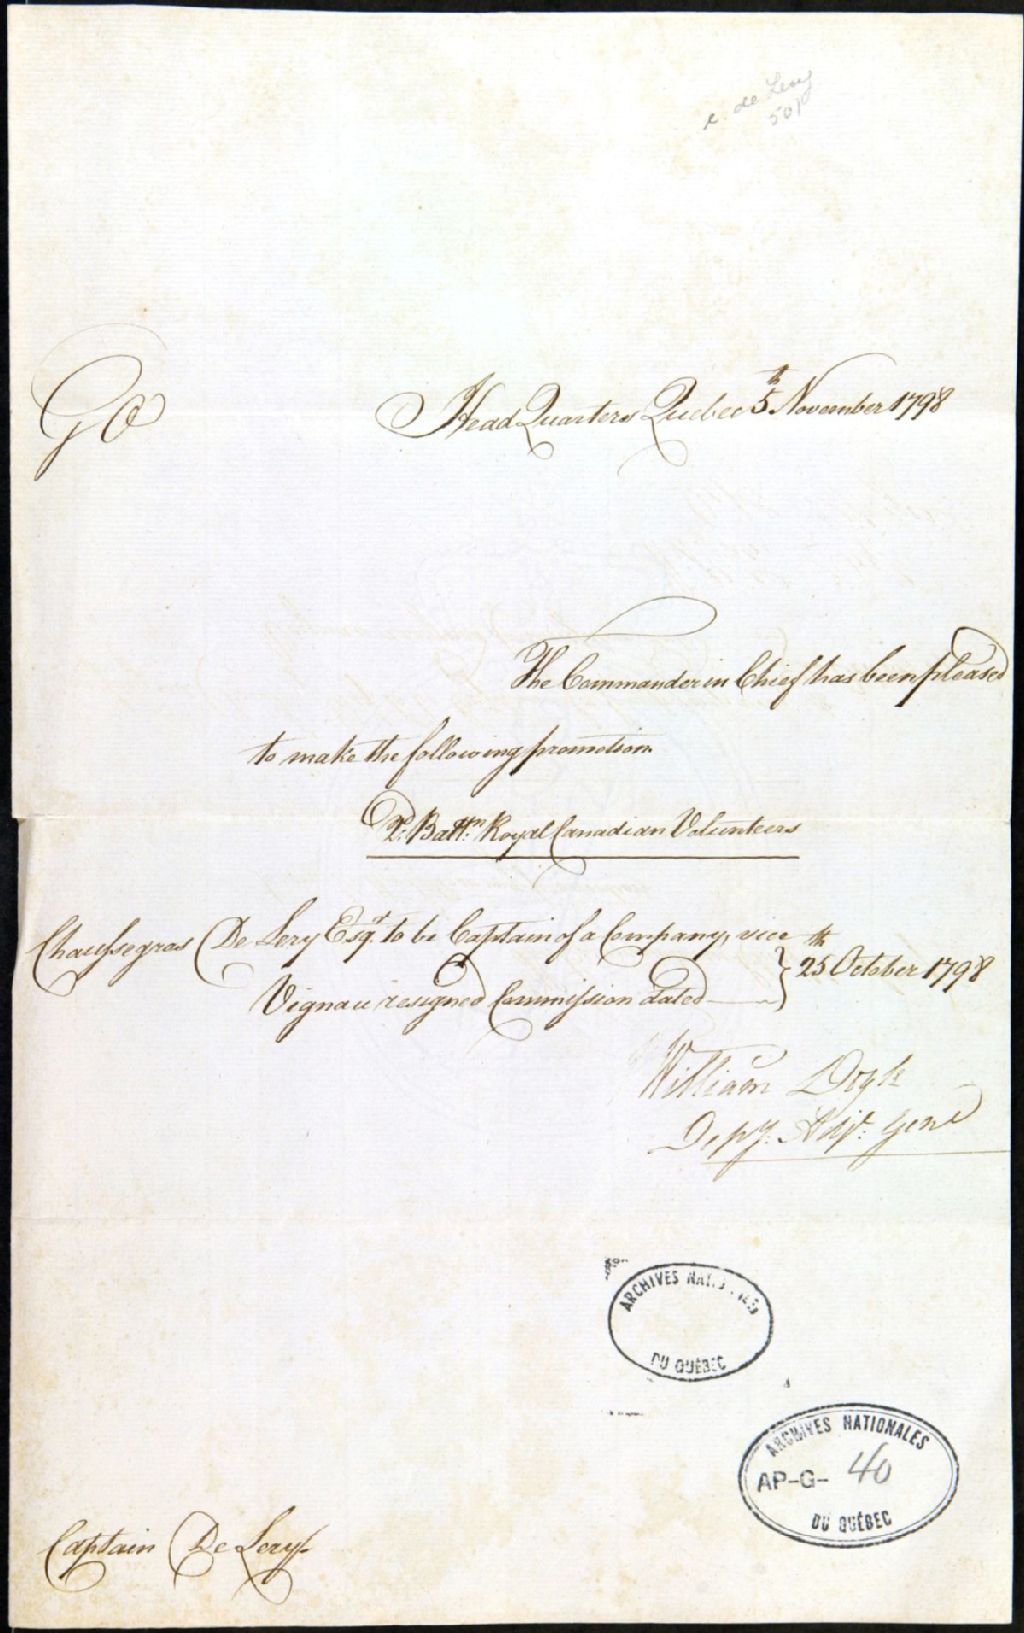 de Lery
501
GO
Head Quarters Quebec 5th November 1798
The Commander in Chief has been pleased
to make the following promotion
2d. Battn. Royal Canadian Volunteers
Chaussegros De Lery Esqr. to be Captain of a Company, vice
Vignau resigned Commission dated } 25th October 1798
William Doyle
Depy. Adjt. Genl
ARCHIVES NATIONALES
DU QUÉBEC
ARCHIVES NATIONALES
AP-G- 40
DU QUÉBEC
Captain De Lery